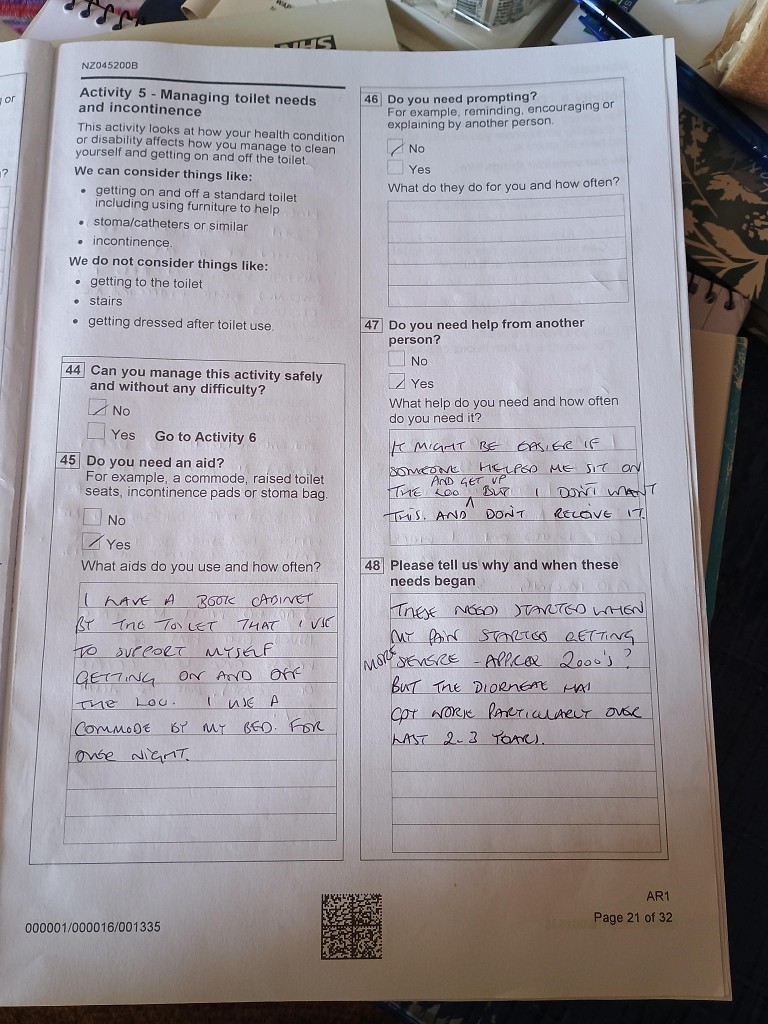 NHS
or
?
NZ045200B
Activity 5 - Managing toilet needs
and incontinence
This activity looks at how your health condition
or disability affects how you manage to clean
yourself and getting on and off the toilet.
We can consider things like:
• getting on and off a standard toilet
including using furniture to help
• stoma/catheters or similar
• incontinence.
We do not consider things like:
• getting to the toilet
• stairs
• getting dressed after toilet use.
44 Can you manage this activity safely
and without any difficulty?
No
Yes Go to Activity 6
45 Do you need an aid?
For example, a commode, raised toilet
seats, incontinence pads or stoma bag.
No
Yes
What aids do you use and how often?
I HAVE A BOOK CABINET
BY THE TOILET THAT I USE
TO SUPPORT MYSELF
GETTING ON AND OFF
THE LOO. I USE A
COMMODE BY MY BED. FOR
OVER NIGHT.
46 Do you need prompting?
For example, reminding, encouraging or
explaining by another person.
No
Yes
What do they do for you and how often?
47 Do you need help from another
person?
No
Yes
What help do you need and how often
do you need it?
IT MIGHT BE EASIER IF
SOMEONE HELPED ME SIT ON
AND GET UP
THE LOO BUT I DON'T WANT
THIS. AND DON'T RECEIVE IT.
48 Please tell us why and when these
needs began
THESE NEEDS STARTED WHEN
MY PAIN STARTED GETTING
MORE SEVERE - APPROX 2000's?
BUT THE HAS
GOT WORSE PARTICULARLY OVER
LAST 2-3 YEARS.
000001/000016/001335
AR1
Page 21 of 32